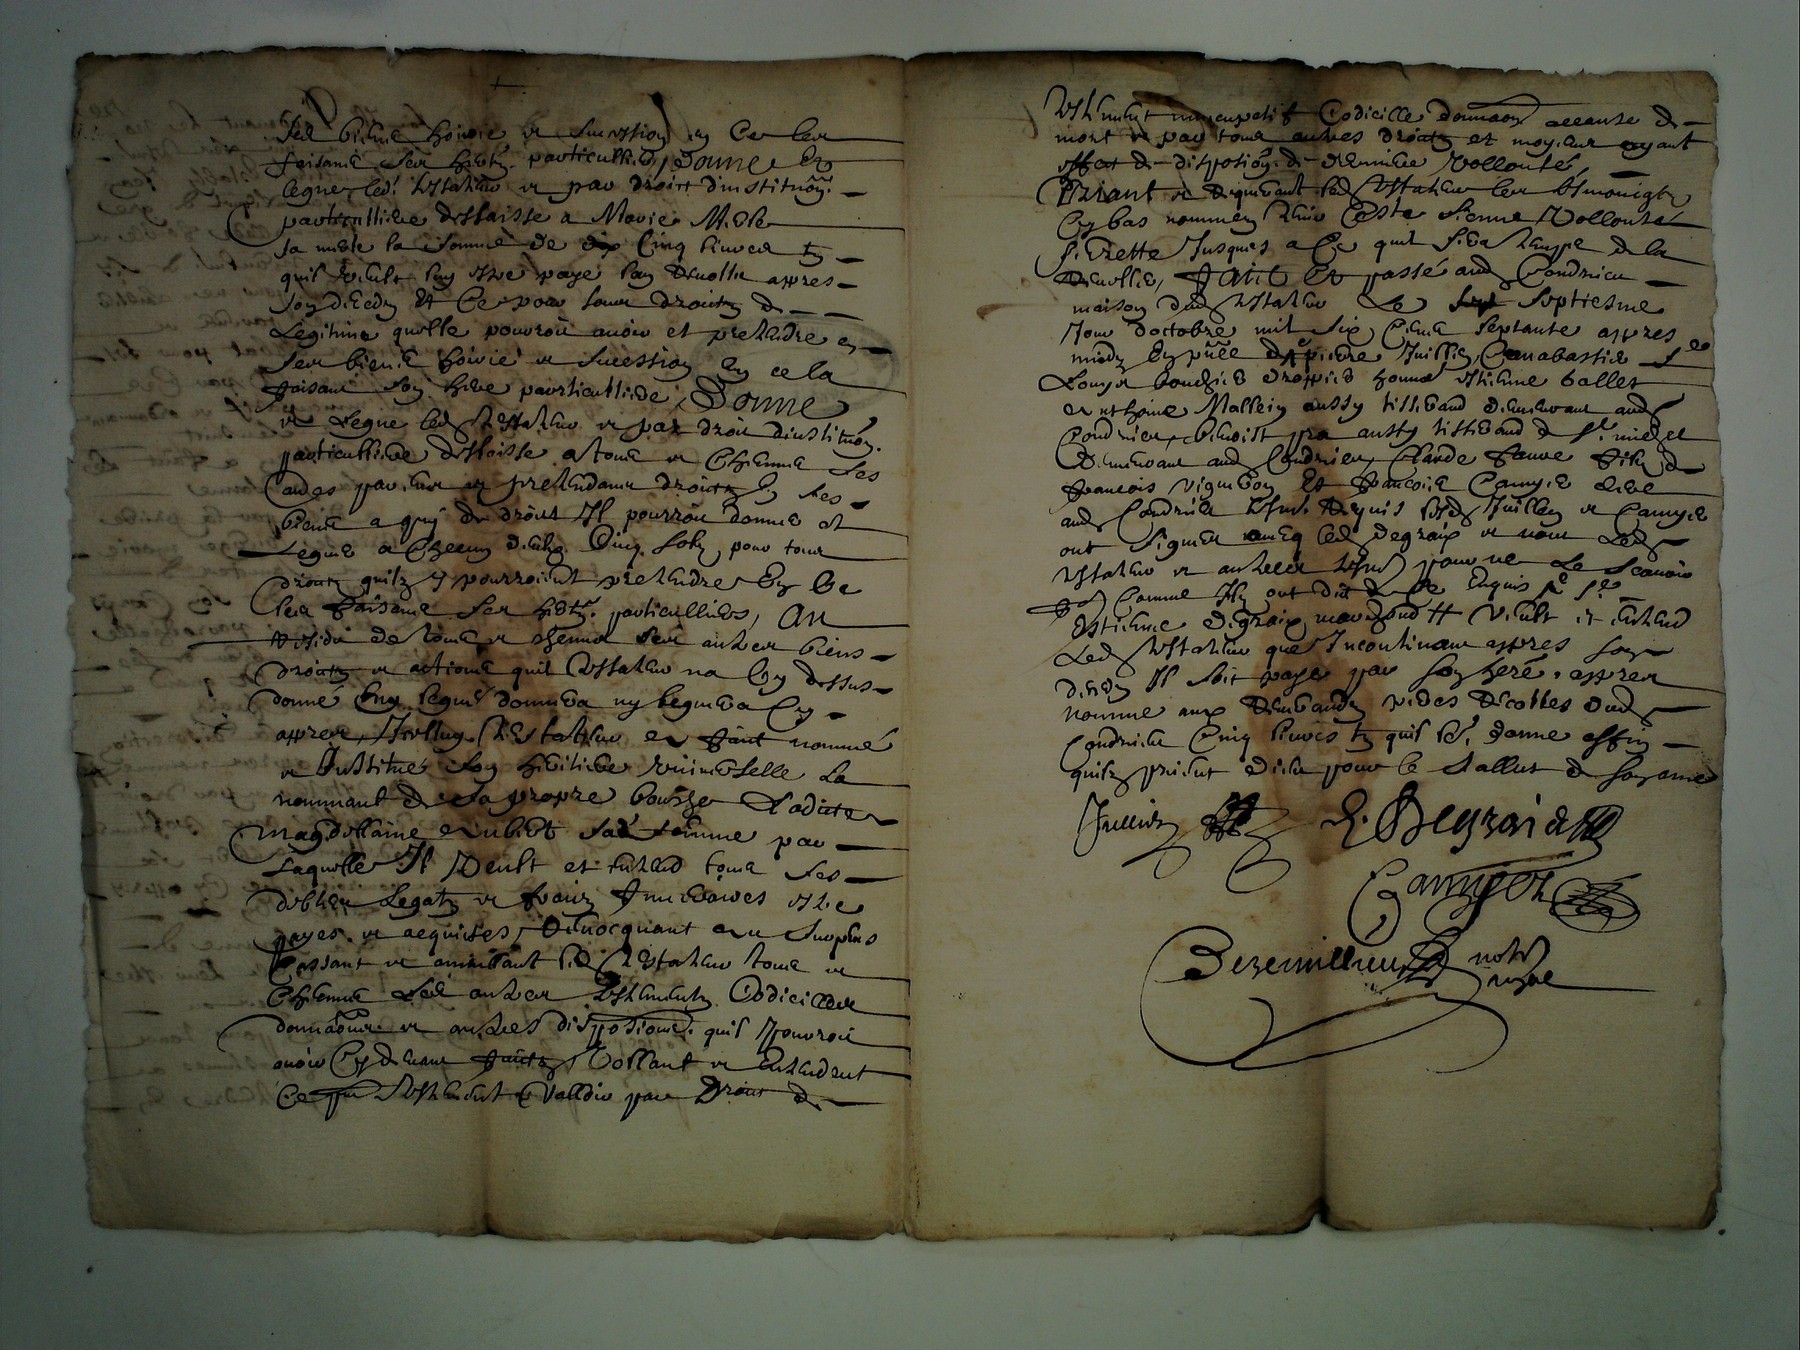 ses biens hoirie et succession en ce les
faisant ses herꝭ. particulliers, Donne et
legue led. testateur et par droict dinstituõn
particulliere dellaisse a Marie
sa mere la somme de cinq livres tz
quil veult luy estre paye lan revollu appres
son deceds et ce pour tous droictz de
Legitime quelle pourroit avoir et pretendre en
ses biens hoirie et sucession en cela
faisant son here particulliere, Donne
et Legue led. testateur et par droit dinstituõn
particulliere dellaisse a tous et chascuns ses
autres parens et pretendans droictz en ses
biens a qui de droict Il pourroit donner et
Leguer a chacun deulx Cinq solz pour tous
droictz quilz y pourroient pretendre En ce
les faisant ses herꝭ. particulliers, Au
residu de tous et chascuns ses autres biens
droictz et actions quil testateur na cy dessus
donné ny legué donnera ny leguera cy
appres, Icelluy testateur en faict nommé
et Institué son heritiere universelle la
nommant de sa propre bouche Ladicte
Magdellaine sad. femme par
Laquelle Il Veult et entend tous ses
debtes Legatz et fraiz funeraires estre
payes et acquictes, Revocquant
Cassant et annullant led. testateur tous et
chascuns ses autres testamentz Codicilles
donnaõns et autres dispositions quil pourroit
avoir cy devant faictz, Vollant et Entendent
Ce pñt testament Valloir par Droict de
testament nuncupatif Codicille donnaõn a cause de
mort et par tous autres droictz et moyens ayant
effect de dispotion de derniere Vollonté,
Priant et Requerant led. testateur les tesmoingtz
Cy bas nommes tenir Ceste sienne Vollonté
secrette Jusques a Ce quil sera temps de la
Reveller, Faict et passé aud. Condrieu
maison dud. testateur Le septiesme
Jour doctobre mil six Cens septante appres
midy En pñce de
Louys bouchier drappier honn estienne ballet
Anthoine Mallein aussy tisserand demeurant aud.
Condrieu, benoist aussy tisserand de St. michel
Demeurant aud. Condrieu, Claude faure filz de
francois vigneron Et francois Camyer clerc
aud. Condrieu tesm. Requis lesd. Jullien et Camyer
ont signes avecq led. Degraix et non Led.
testateur et autres tesm. pour ne le scavoir
Comme Ilz ont dit de ce Enquis
Estienne Degraix marchand Veult et entend
Led. testateur que Incontinant appres son
deceds Il soit paye par son heré. appres
nomme aux
Condrieu Cinq livres tz quil donne affin
quilz prient dieu pour le sallut de son ame
Jullien E. Degraix
Camyer
notre
royal